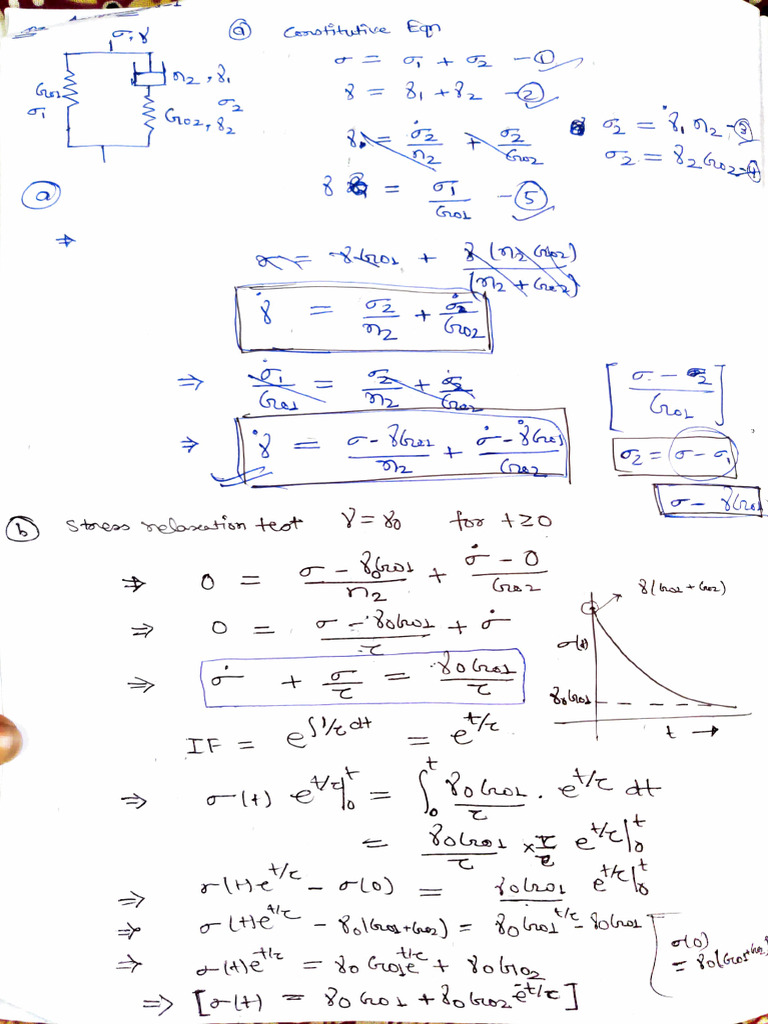 σ, γ
ⓐ Constitutive Eqn
G01 σ1 η2, γ1
G02, γ2 σ2
σ = σ1 + σ2 — ①
γ = γ1 + γ2 — ②
γ̇ = σ̇2/η2 + σ2/G02
σ2 = γ̇1 η2 — ③
σ2 = γ2 G02 — ④
γ = σ1/G01 — ⑤
ⓐ
⇒ σ = γG01 + γ(η2 G02)/(η2 + G02)
γ̇ = σ2/η2 + σ̇2/G02
⇒ σ̇1/G01 = σ2/η2 + σ̇2/G02
[σ - σ2/G01]
⇒ γ̇ = σ - γG01/η2 + σ̇ - γ̇G01/G02
σ2 = σ - σ1
σ - γG01
ⓑ Stress relaxation test γ = γ0 for t ≥ 0
⇒ 0 = σ - γ0G01/η2 + σ̇ - 0/G02
⇒ 0 = σ - γ0G01/τ + σ̇
⇒ σ̇ + σ/τ = γ0G01/τ
γ(G01 + G02)
σ(t)
γ0G01
t →
IF = e^∫1/τ dt = e^t/τ
⇒ σ(t) e^t/τ |0^t = ∫0^t γ0G01/τ . e^t/τ dt
= γ0G01/τ × τ e^t/τ |0^t
⇒ σ(t)e^t/τ - σ(0) = γ0G01 e^t/τ |0^t
⇒ σ(t)e^t/τ - γ0(G01+G02) = γ0G01^t/τ - γ0G01
⇒ σ(t)e^t/τ = γ0G01e^t/τ + γ0G02
σ(0)
= γ0(G01+G02)
⇒ [σ(t) = γ0G01 + γ0G02 e^-t/τ]